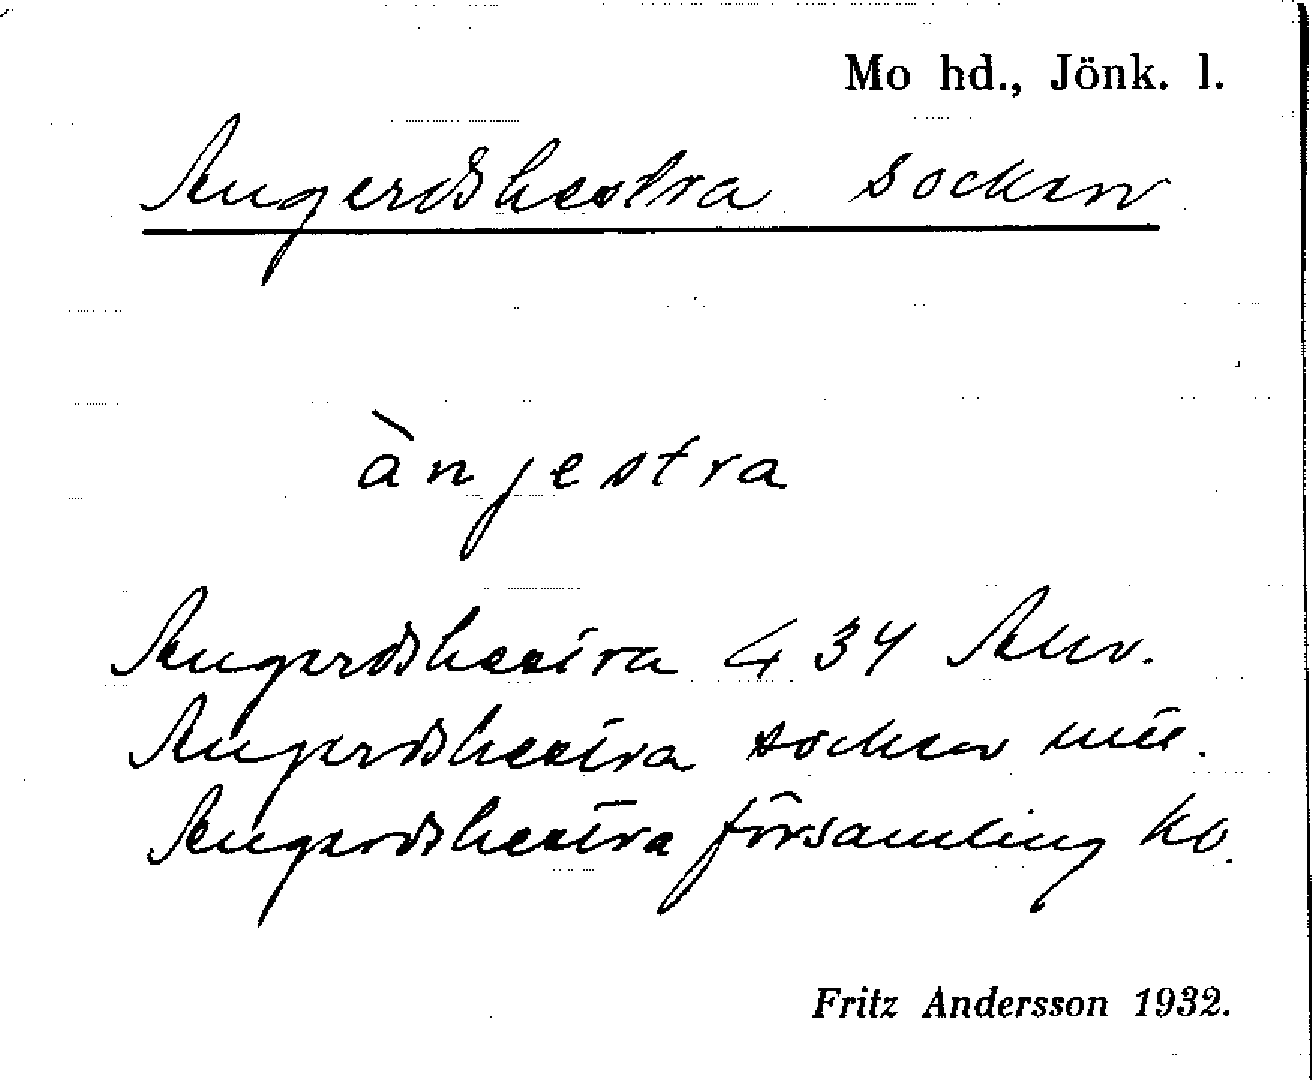 Mo hd., Jönk. l.
Angerdshestra socken
ànjestra
Angerdshestra 434 Allv.
Angerdshestra socken
Angerdshestra församling kb.
Fritz Andersson 1932.